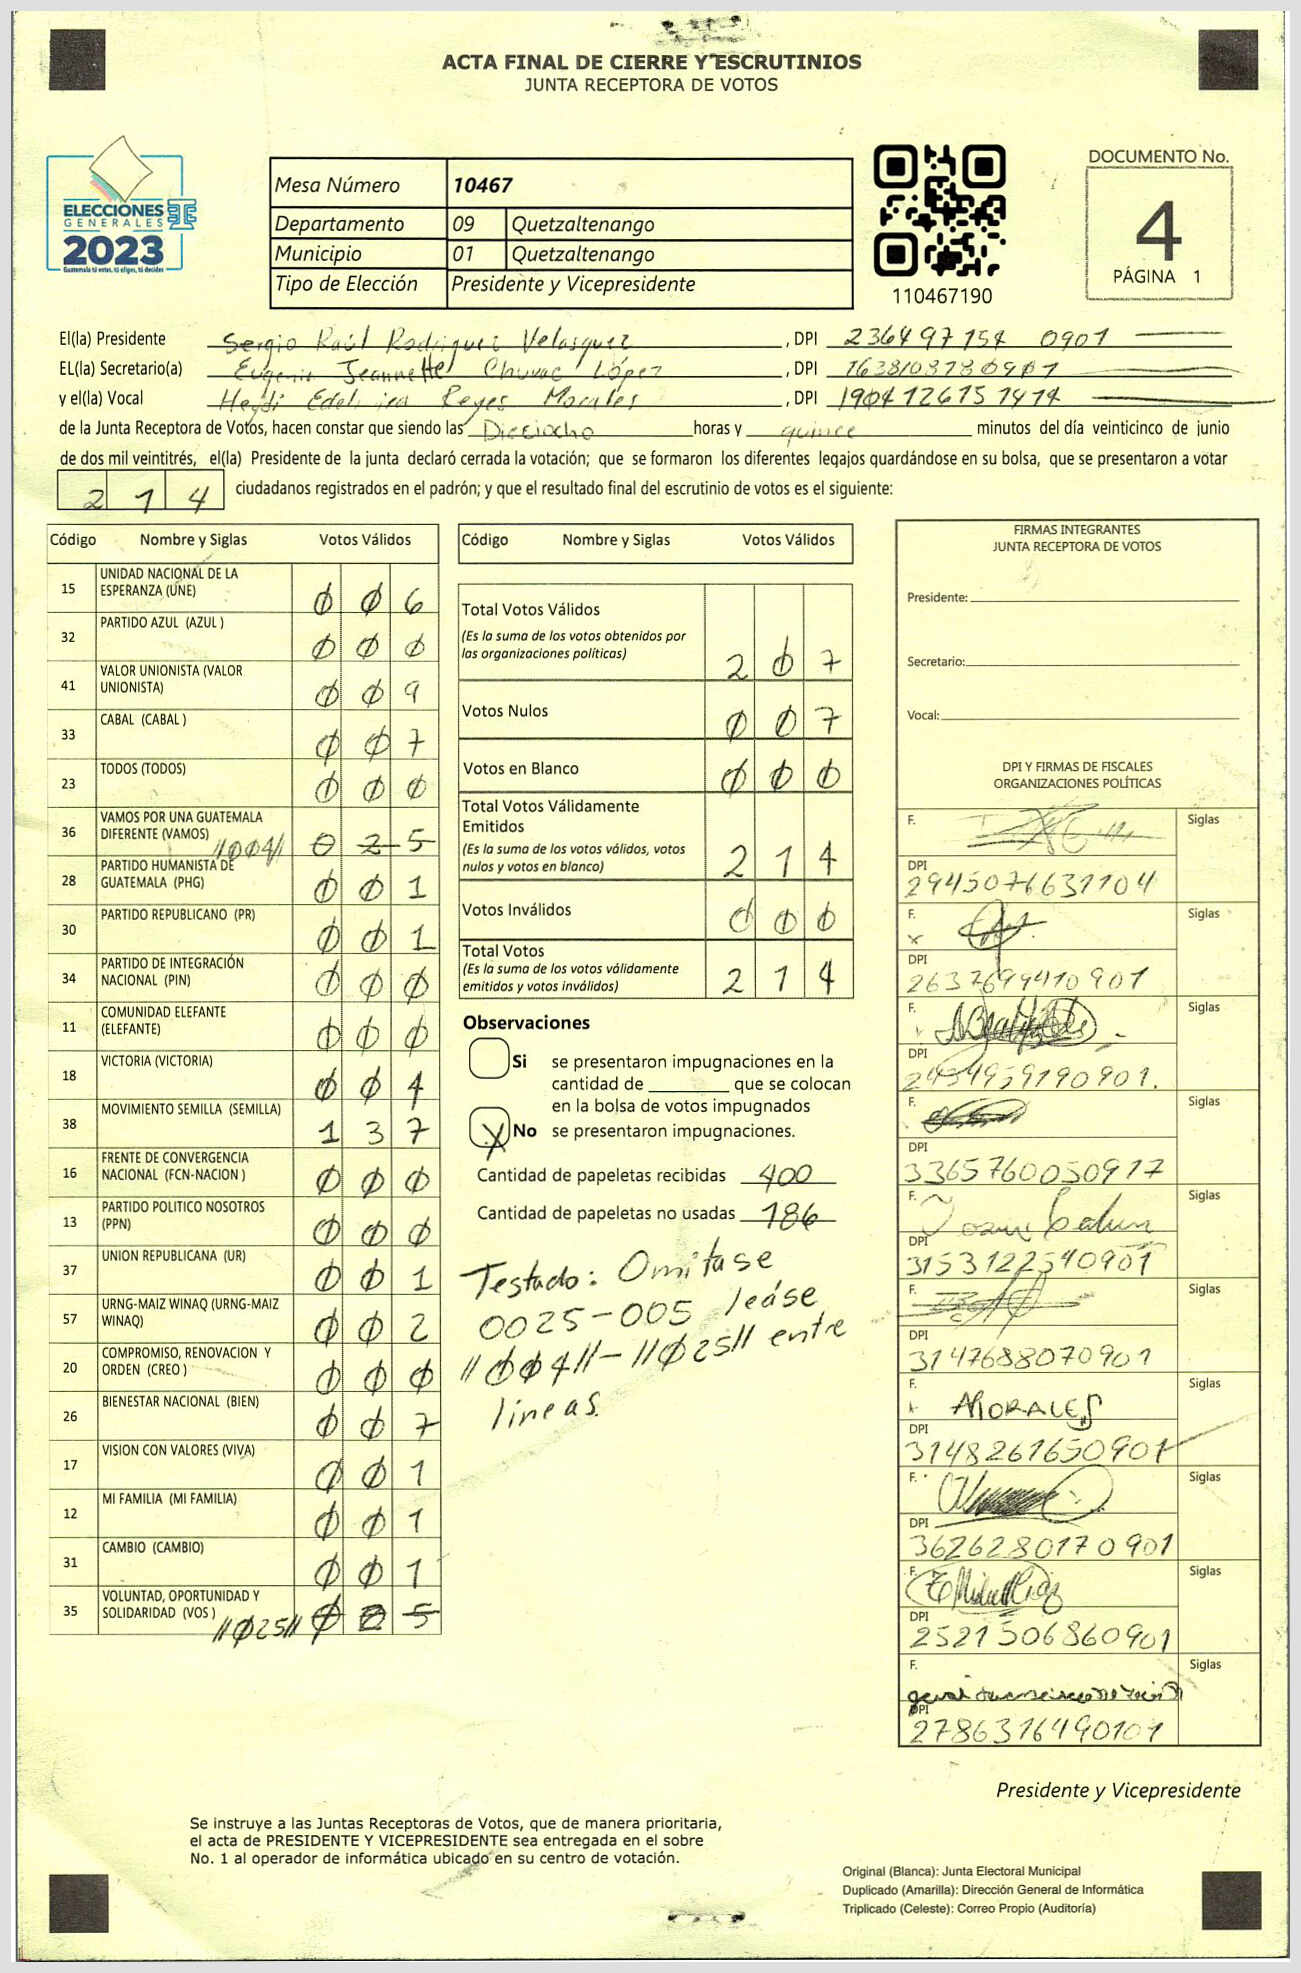 ACTA FINAL DE CIERRE Y ESCRUTINIOS
JUNTA RECEPTORA DE VOTOS
ELECCIONES
GENERALES
2023
Guatemala tú votas, tú eliges, tú decides
Mesa Número 10467
Departamento 09 Quetzaltenango
Municipio 01 Quetzaltenango
Tipo de Elección Presidente y Vicepresidente
110467190
DOCUMENTO No.
4
PÁGINA 1
El(la) Presidente Sergio Raúl Rodriguez Velasquez, DPI 236497154 0901
EL(la) Secretario(a) Eugenia Jeannette Chuvac López, DPI 1638108780901
y el(la) Vocal Heydi Reyes Morales, DPI 1904126151414
de la Junta Receptora de Votos, hacen constar que siendo las Dieciocho horas y quince minutos del día veinticinco de junio
de dos mil veintitrés, el(la) Presidente de la junta declaró cerrada la votación; que se formaron los diferentes legajos guardándose en su bolsa, que se presentaron a votar
214 ciudadanos registrados en el padrón; y que el resultado final del escrutinio de votos es el siguiente:
Código Nombre y Siglas Votos Válidos
15 UNIDAD NACIONAL DE LA ESPERANZA (UNE) 0 0 6
32 PARTIDO AZUL (AZUL ) 0 0 0
41 VALOR UNIONISTA (VALOR UNIONISTA) 0 0 9
33 CABAL (CABAL ) 0 0 7
23 TODOS (TODOS) 0 0 0
36 VAMOS POR UNA GUATEMALA DIFERENTE (VAMOS) //004// 0 2 5
28 PARTIDO HUMANISTA DE GUATEMALA (PHG) 0 0 1
30 PARTIDO REPUBLICANO (PR) 0 0 1
34 PARTIDO DE INTEGRACIÓN NACIONAL (PIN) 0 0 0
11 COMUNIDAD ELEFANTE (ELEFANTE) 0 0 0
18 VICTORIA (VICTORIA) 0 0 4
38 MOVIMIENTO SEMILLA (SEMILLA) 1 3 7
16 FRENTE DE CONVERGENCIA NACIONAL (FCN-NACION ) 0 0 0
13 PARTIDO POLITICO NOSOTROS (PPN) 0 0 0
37 UNION REPUBLICANA (UR) 0 0 1
57 URNG-MAIZ WINAQ (URNG-MAIZ WINAQ) 0 0 2
20 COMPROMISO, RENOVACION Y ORDEN (CREO ) 0 0 0
26 BIENESTAR NACIONAL (BIEN) 0 0 7
17 VISION CON VALORES (VIVA) 0 0 1
12 MI FAMILIA (MI FAMILIA) 0 0 1
31 CAMBIO (CAMBIO) 0 0 1
35 VOLUNTAD, OPORTUNIDAD Y SOLIDARIDAD (VOS ) //025// 5
Código Nombre y Siglas Votos Válidos
Total Votos Válidos 2 0 7
(Es la suma de los votos obtenidos por
las organizaciones políticas)
Votos Nulos 0 0 7
Votos en Blanco 0 0 0
Total Votos Válidamente
Emitidos 2 1 4
(Es la suma de los votos válidos, votos
nulos y votos en blanco)
Votos Inválidos 0 0 0
Total Votos 2 1 4
(Es la suma de los votos válidamente
emitidos y votos inválidos)
Observaciones
Si se presentaron impugnaciones en la
cantidad de ________ que se colocan
en la bolsa de votos impugnados
X No se presentaron impugnaciones.
Cantidad de papeletas recibidas 400
Cantidad de papeletas no usadas 186
Testado: Omitase
0025-005 leáse
//004//-//025// entre
lineas.
FIRMAS INTEGRANTES
JUNTA RECEPTORA DE VOTOS
Presidente:
Secretario:
Vocal:
DPI Y FIRMAS DE FISCALES
ORGANIZACIONES POLÍTICAS
F. Siglas
DPI
2945076631104
F. Siglas
DPI
2637699410901
F. Siglas
DPI
2434959190901.
F. Siglas
DPI
3365760050917
F. Siglas
DPI
3153122540901
F. Siglas
DPI
3147688070901
F. MORALES Siglas
DPI
3148261650901
F. Siglas
DPI
3626280170901
F. Siglas
DPI
2521506860901
F. Siglas
DPI
2786316490101
Presidente y Vicepresidente
Se instruye a las Juntas Receptoras de Votos, que de manera prioritaria,
el acta de PRESIDENTE Y VICEPRESIDENTE sea entregada en el sobre
No. 1 al operador de informática ubicado en su centro de votación.
Original (Blanca): Junta Electoral Municipal
Duplicado (Amarilla): Dirección General de Informática
Triplicado (Celeste): Correo Propio (Auditoría)